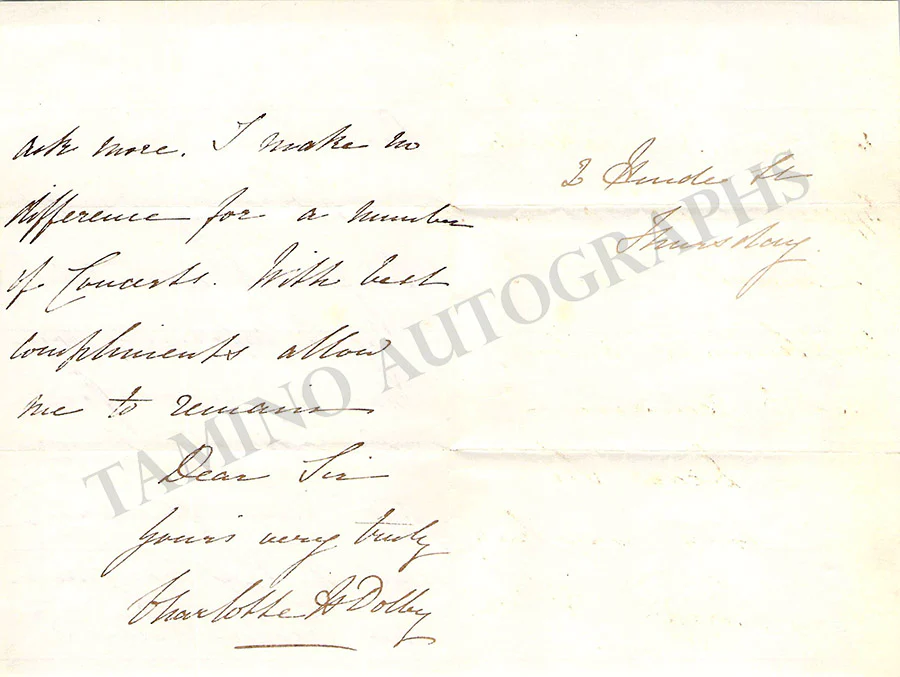 ask more. I make no
difference for a number
of Concerts. With best
compliments allow
me to remain
Dear Sir
Yours very truly
Charlotte H Dolby
2 Hinde St
Thursday.
TAMINO AUTOGRAPHS